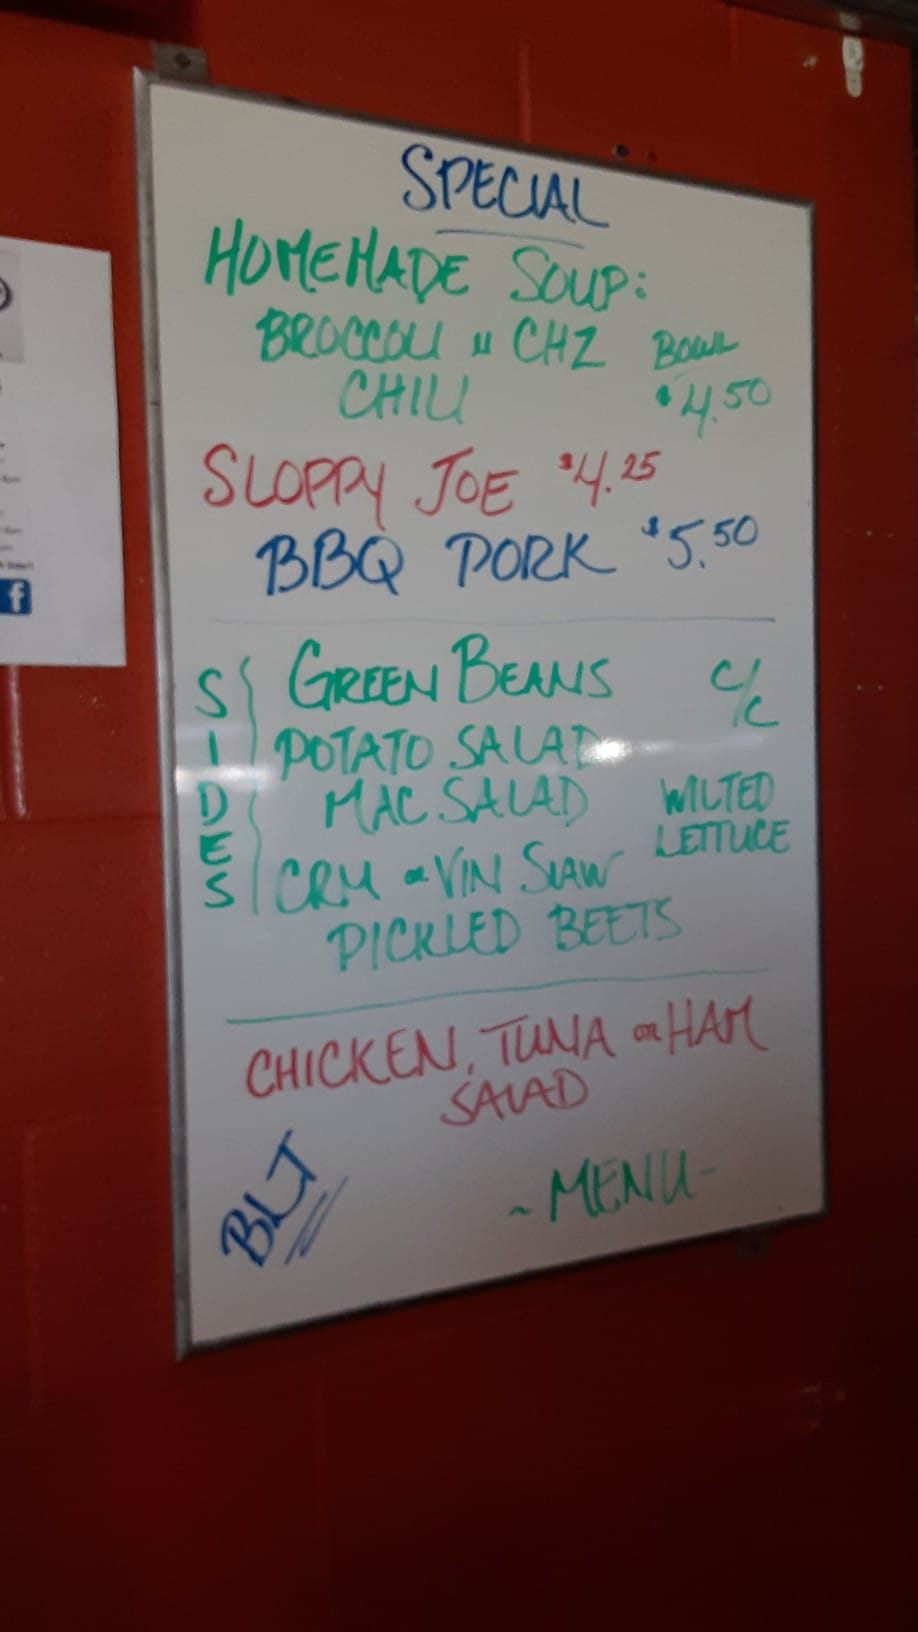 SPECIAL
HOMEMADE SOUP:
BROCCOLI n CHZ
CHILI
BOWL
$4.50
SLOPPY JOE $4.25
BBQ PORK $5.50
SIDES
GREEN BEANS
C/C
POTATO SALAD
MAC SALAD
WILTED
LETTUCE
CRM or VIN SLAW
PICKLED BEETS
CHICKEN, TUNA or HAM
SALAD
BLT
~MENU-
f